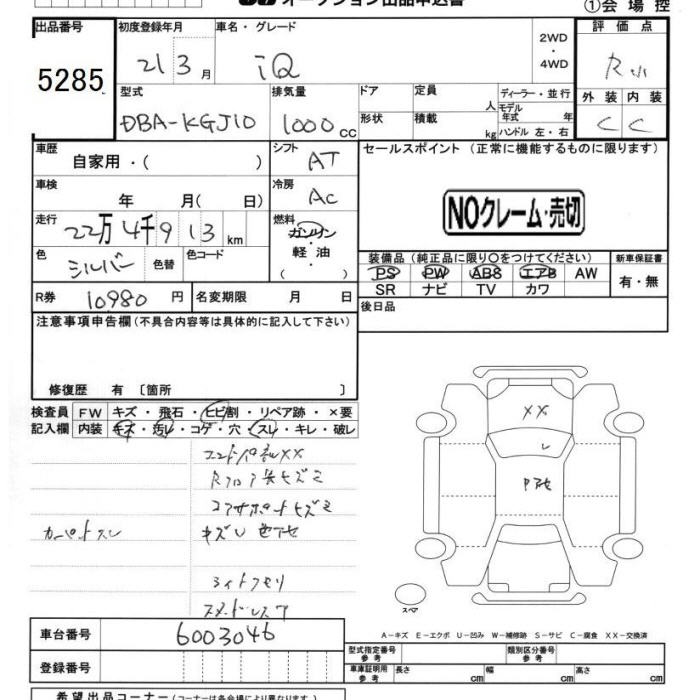 オークション出品申込書
①会場控
出品番号 初度登録年月 車名・グレード 2WD・4WD 評価点
5285 21 3月 iQ R
型式 排気量 ドア 定員 人 ディーラー・並行 外装 内装
DBA-KGJ10 1000cc 形状 積載 kg モデル年式 年 ハンドル 左・右 C C
車歴 シフト セールスポイント (正常に機能するものに限ります)
自家用・( ) AT
車検 冷房
年 月( 日) AC
NOクレーム・売切
走行 燃料
22万4千913km ガソリン・軽油・( )
色 シルバー 色替 色コード
装備品(純正品に限り○をつけてください) 新車保証書
PS PW ABS エアB AW 有・無
SR ナビ TV カワ
R券 10980円 名変期限 月 日
後日品
注意事項申告欄(不具合内容等は具体的に記入して下さい)
修復歴 有 〔箇所 〕
検査員 FW キズ・飛石・ヒビ割・リペア跡・×要
記入欄 内装 キズ・汚レ・コゲ・穴・スレ・キレ・破レ
XX
コアサポートキズミ
カーペットスレ
ライトクモリ
スペア
車台番号 6003046
登録番号
A-キズ E-エクボ U-凹み W-補修跡 S-サビ C-腐食 XX-交換済
型式指定番号 参考 類別区分番号 参考
車庫証明用 参考 長さ cm 幅 cm 高さ cm
希望出品コーナー